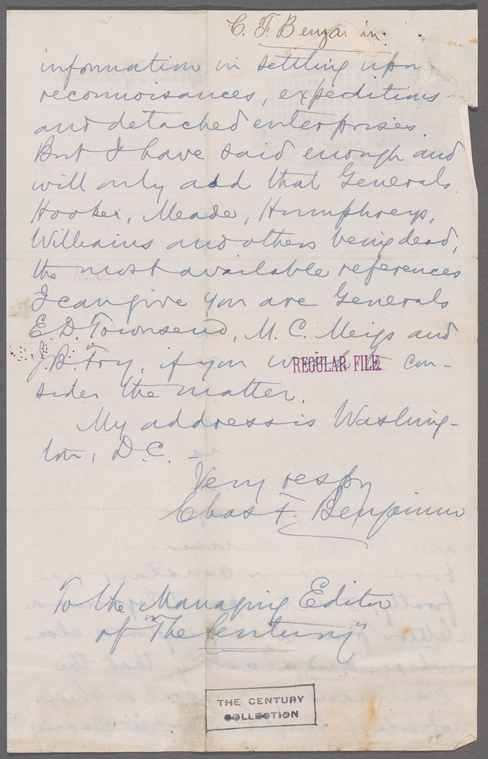 C. F. Benjamin.
information in settling upon
reconnoisances, expeditions
and detached enterprises.
But I have said enough and
will only add that Generals
Hooker, Meade, Humphreys,
Williams and others being dead,
the most available references
I can give you are Generals
E D Townsend, M. C. Meigs and
J. B. Fry, if you con-
REGULAR FILE
sider the matter.
My address is Washing-
ton, D.C.
Very respy
Chas F. Benjamin
To the Managing Editor
of "The Century"
THE CENTURY
COLLECTION